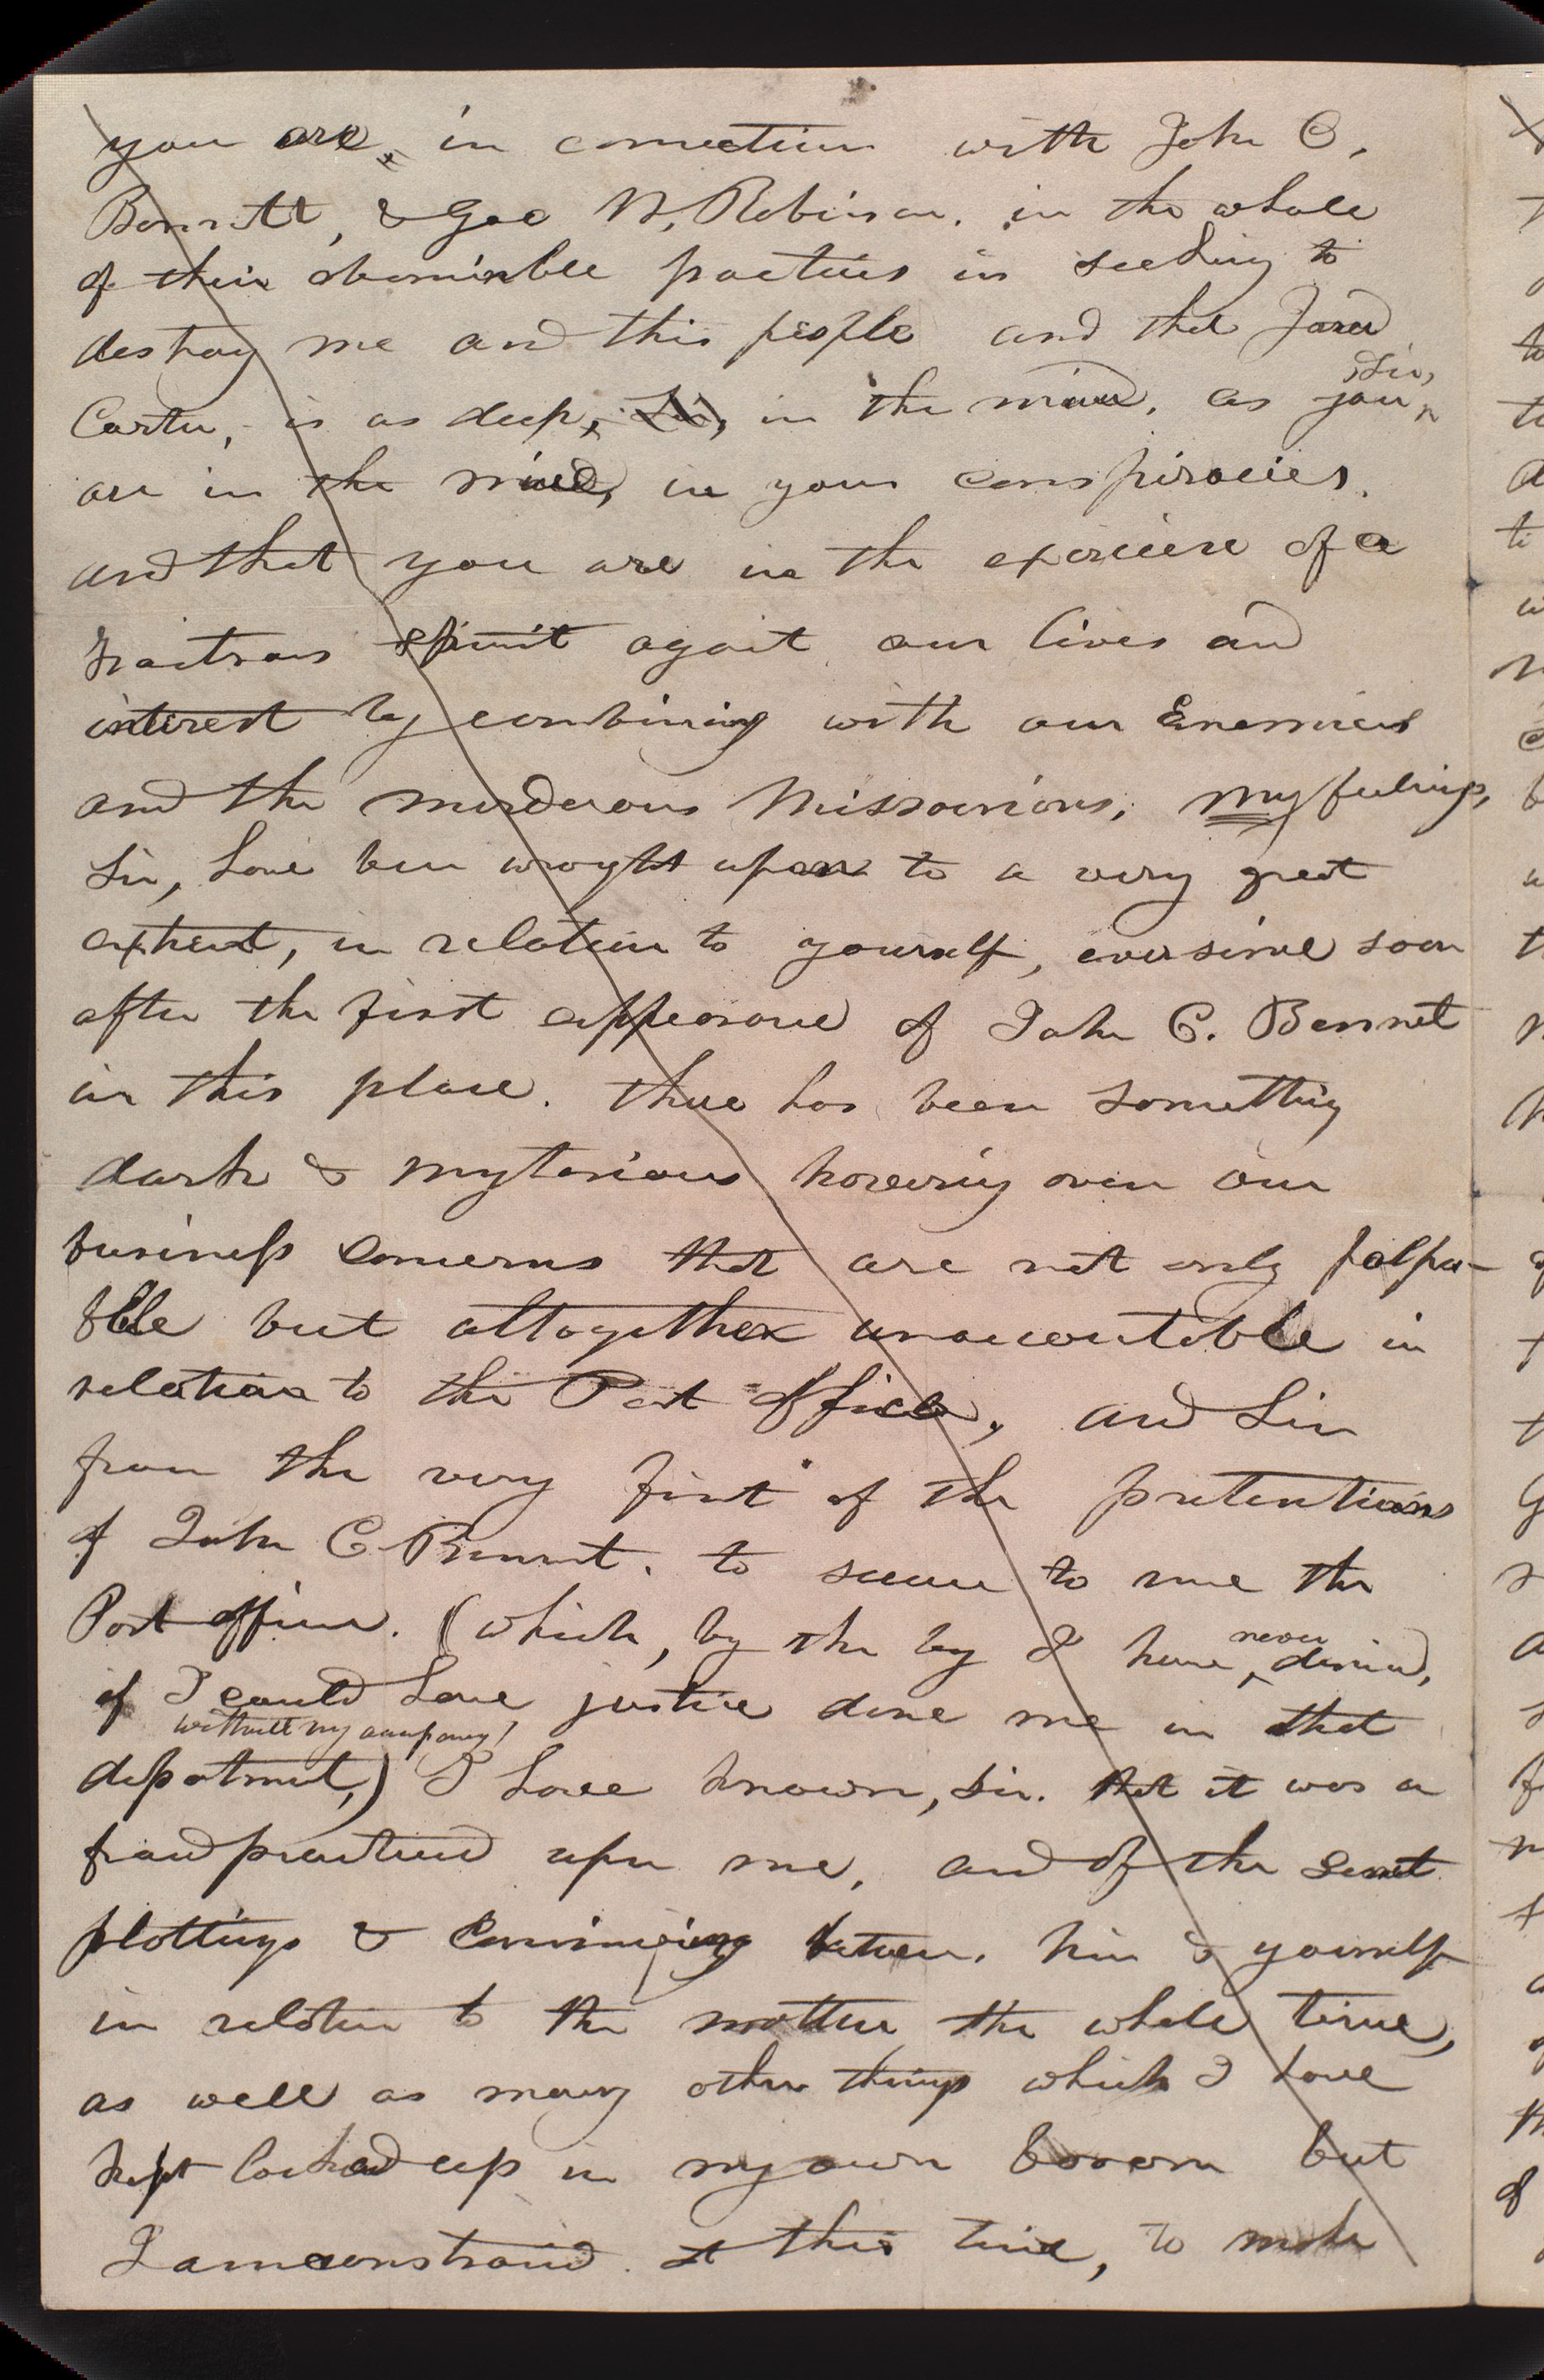 you are, in connection with John C.
Bennett, & Geo W. Robinson. in the whole
of their abominble practices in seeking to
destroy me and this people and that Jared
Carter, is as deep, Sir, in the mud, as you, Sir,
are in the mire, in your conspiracies.
and that you are in the exercise of a
traitrous spirit against our lives and
interest by combining with our Enemies
and the murderous Missourians. my feelings,
Sir, have been wroght upon to a very great
extent, in relation to yourself, ever since soon
after the first appearance of John C. Bennet
in this place. there has been something
dark & mysterious hovering over our
business concerns that are not only palpa-
ble but altogether unaccountable in
relation to the Post office, and Sir
from the very first of the pretentions
of John C. Bennet. to secure to me the
Post office. (which, by the by I have never desired,
if I could have justice done me in that
department,) I have known, Sir. that it was a
fraud practised upon me, and of the secret
plottings & conniving between him & yourself
in relation to the matter the whole time,
as well as many other things which I have
kept locked up in my own bosom but
I am constraind at this time, to make